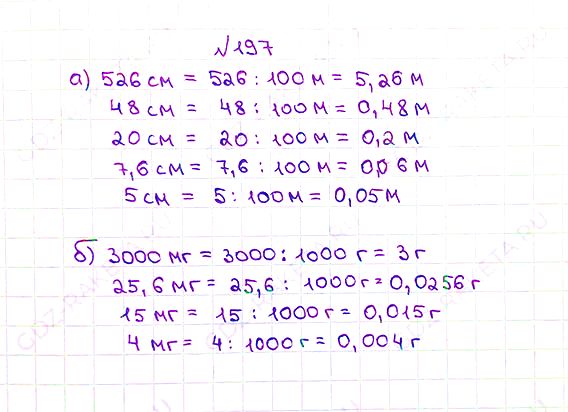 №197
а) 526 см = 526 : 100 м = 5,26 м
48 см = 48 : 100 м = 0,48 м
20 см = 20 : 100 м = 0,2 м
7,6 см = 7,6 : 100 м = 0,0 6 м
5 см = 5 : 100 м = 0,05 м
б) 3000 мг = 3000 : 1000 г = 3 г
25,6 мг = 25,6 : 1000 г = 0,0256 г
15 мг = 15 : 1000 г = 0,015 г
4 мг = 4 : 1000 г = 0,004 г